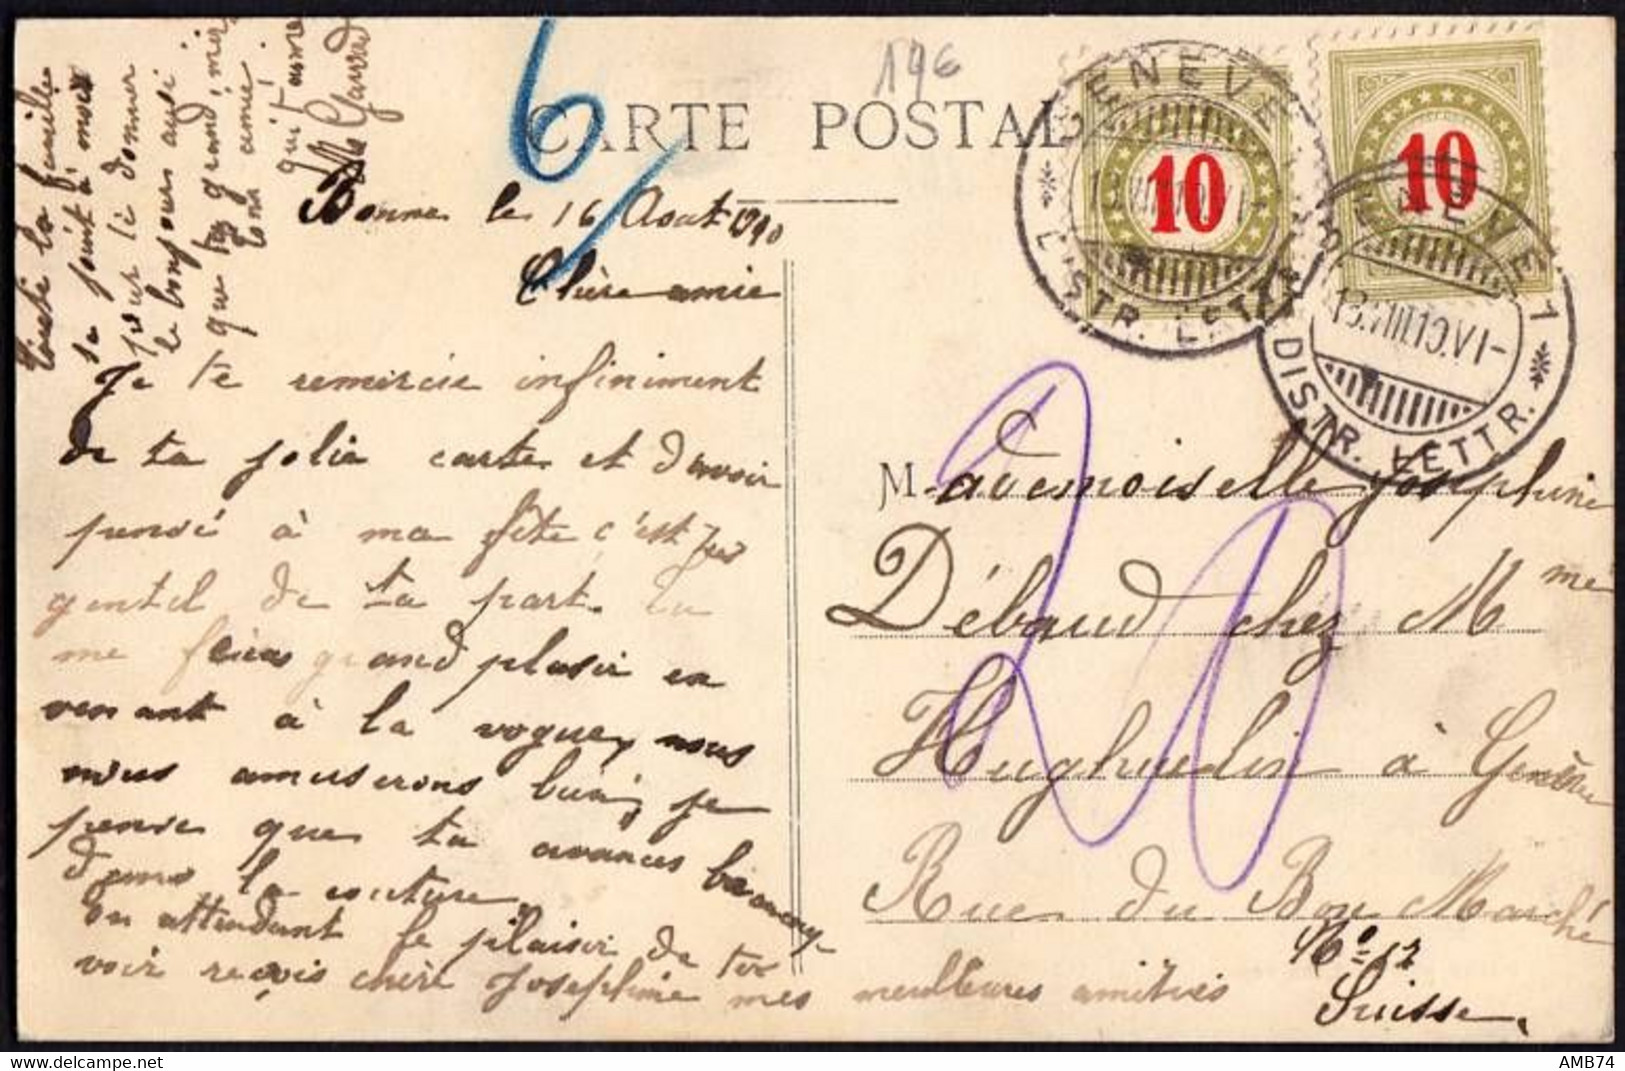 6
14€
CARTE POSTALE
Bonne le 16 Août 1910
Chère amie
Je te remercie infiniment
de ta jolie carte et d'avoir
pensé à ma fête c'est
gentil de ta part. tu
me feras grand plaisir en
venant à la vogue, nous
nous amuserons bien, je
pense que tu avances beaucoup
dans la couture.
En attendant le plaisir de te
voir reçois chère Josephine mes meilleures amitiés
Toute la famille
se joint à moi
pour te donner
le bonjour aussi
que ta grand'mère
ton amie
qui t'aime
M Gavard
10
10
GENEVE 1
DISTR. LETTR.
GENEVE 1
13.VIII.10.VI-
DISTR. LETTR.
20
Mademoiselle Josephine
Débaud chez Mme
à Genève
Rue du Bon Marché
No 17
Suisse
AMB74